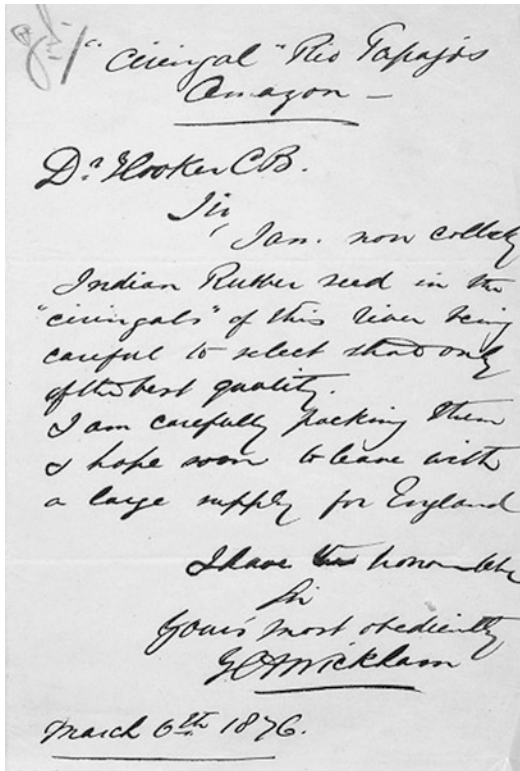 "Ciringal" Rio Tapajos
Amazon —
Dr. Hooker C.B.
Sir,
I am now collectg
Indian Rubber seed in the
"ciringals" of this river being
careful to select that only
of the best quality.
I am carefully packing them
& hope soon to leave with
a large supply for England
I have the honor to be
Sir
Yours most obediently
H A Wickham
March 6th 1876.